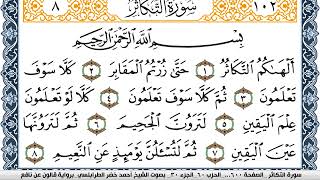 ٨ سُورَةُ التَّكَاثُرِ ١٠٢
بِسْمِ اللَّهِ الرَّحْمَٰنِ الرَّحِيمِ
أَلْهَىٰكُمُ التَّكَاثُرُ ١ حَتَّىٰ زُرْتُمُ الْمَقَابِرَ ٢ كَلَّا سَوْفَ
تَعْلَمُونَ ٣ ثُمَّ كَلَّا سَوْفَ تَعْلَمُونَ ٤ كَلَّا لَوْ تَعْلَمُونَ
عِلْمَ الْيَقِينِ ٥ لَتَرَوُنَّ الْجَحِيمَ ٦ ثُمَّ لَتَرَوُنَّهَا
عَيْنَ الْيَقِينِ ٧ ثُمَّ لَتُسْـَٔلُنَّ يَوْمَئِذٍ عَنِ النَّعِيمِ ٨
سورة التكاثر الصفحة ٦٠٠ ... الحزب ٦٠ الجزء ٣٠ بصوت الشيخ أحمد خضر الطرابلسي برواية قالون عن نافع